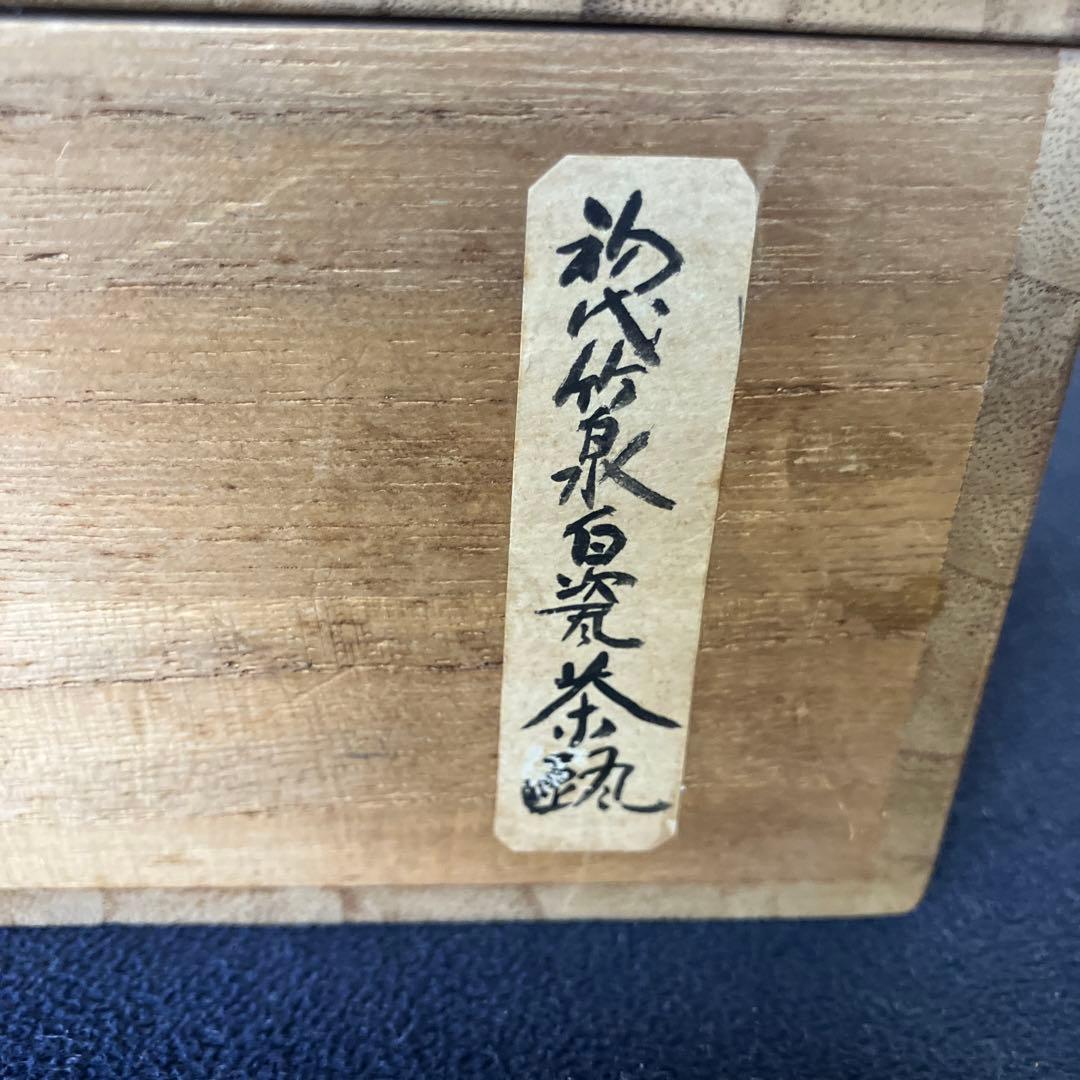 初代竹泉白瓷茶瓯